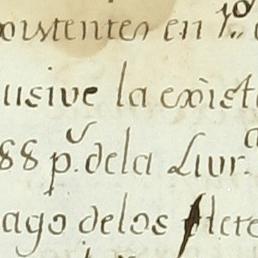 existentes en 1º
usive la exist
88 pr. dela Livr.a
ago delos flete